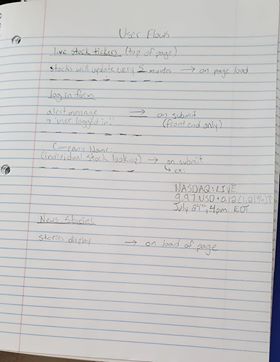 User Flows
live stock tickers (top of page)
stocks will update every 5 minutes → on page load
log in form
alert message → on submit
user logged in (front end only)
Company Name
(individual stock lookup) → on submit
NASDAQ: LIVE
9.97 USD
July 29th, 4pm EDT
News Stories
stories display → on load of page